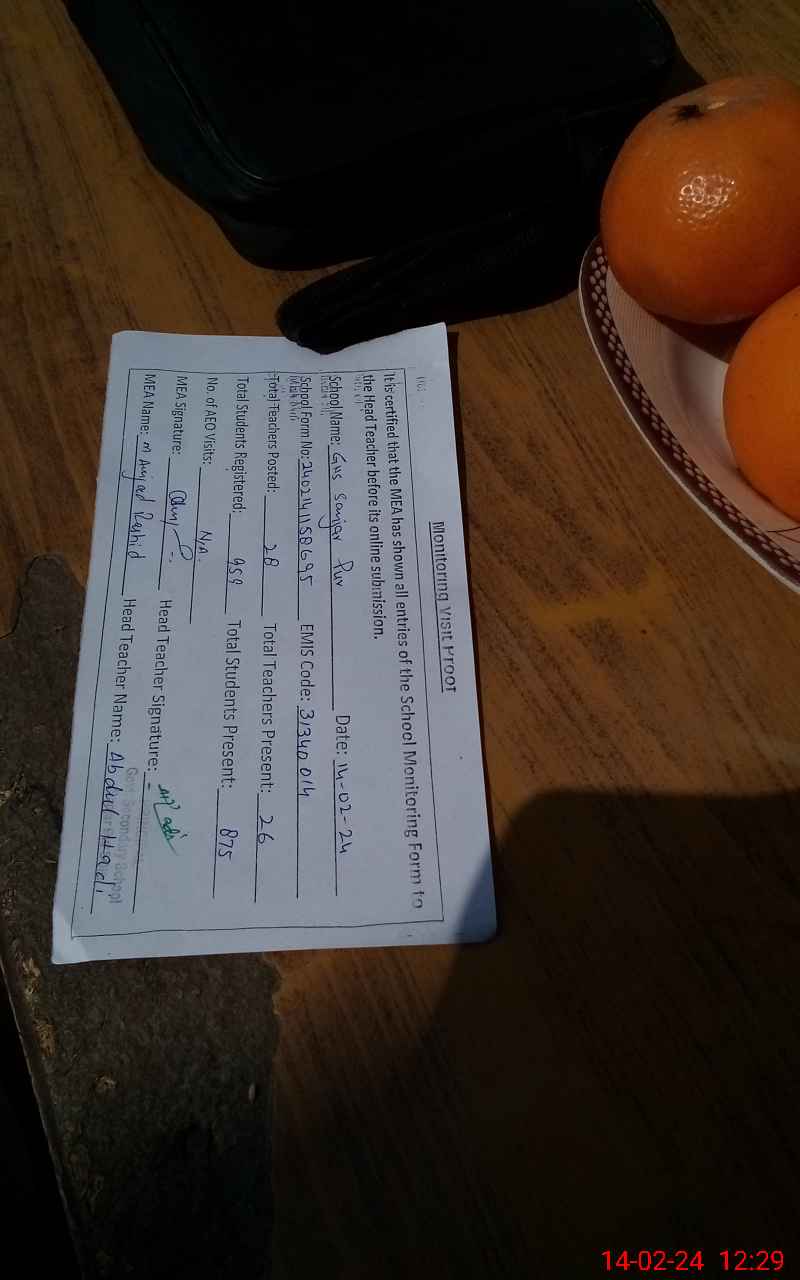 Monitoring Visit Proof
It is certified that the MEA has shown all entries of the School Monitoring Form to
the Head Teacher before its online submission.
School Name: GHS Sanjar Pur Date: 14-02-24
School Form No: EMIS Code: 31340014
Total Teachers Posted: 28 Total Teachers Present: 26
Total Students Registered: 959 Total Students Present: 875
No. of AEO Visits: N.A.
MEA Signature: Head Teacher Signature:
MEA Name: M Amjad Rashid Head Teacher Name: Abdul Hadi
Govt Secondary School
14-02-24 12:29